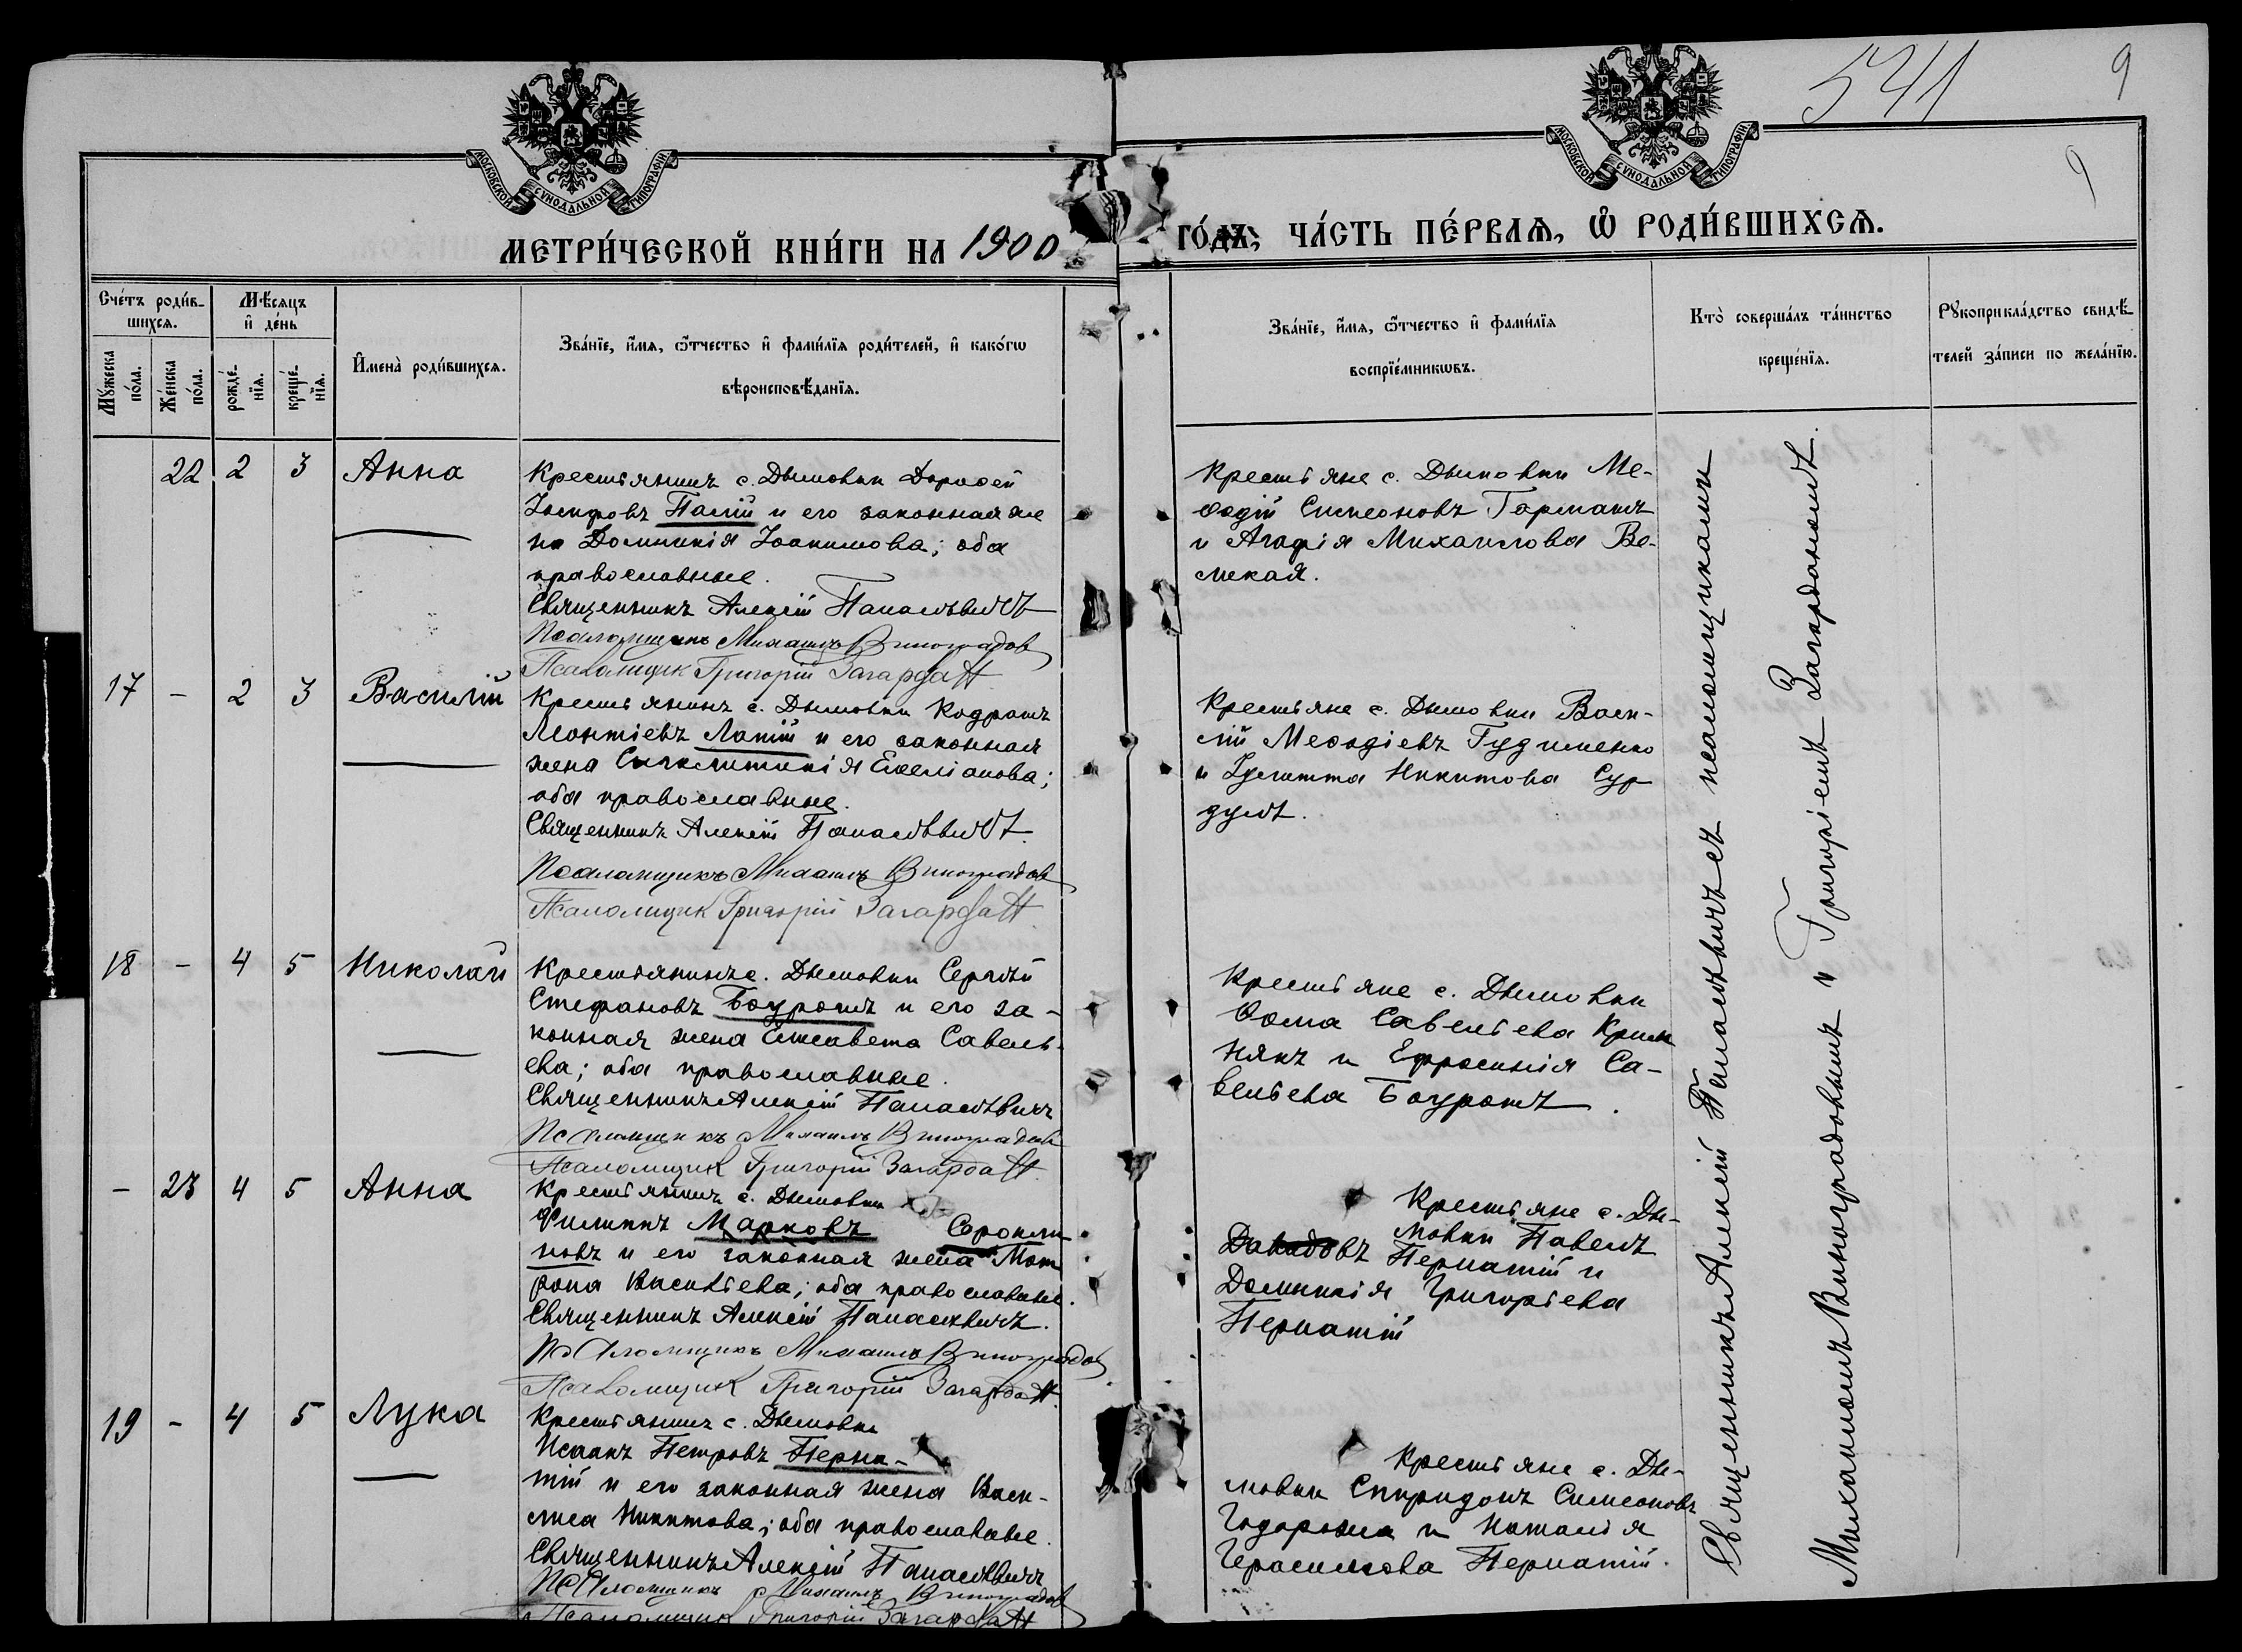 541
9
9
МОСКОВСКОЙ СѴНОДАЛЬНОЙ ТИПОГРАФІИ
МОСКОВСКОЙ СѴНОДАЛЬНОЙ ТИПОГРАФІИ
МЕТРИ́ЧЕСКОЙ КНИ́ГИ НА 1900 ГО́ДЪ, ЧА́СТЬ ПЕ́РВАѦ, Ѽ РОДИ́ВШИХСѦ.
Сче́тъ роди́в-
шихсѧ.
Мꙋ́жеска по́ла.
Же́нска по́ла.
Мѣ́сѧцъ и҆ де́нь
рожде́-нїѧ.
креще́-нїѧ.
И҆мена̀ роди́вшихсѧ.
Зва́нїе, и҆́мѧ, ѻ҆́тчество и҆ фами́лїѧ роди́телей, и҆ како́гѡ
вѣроисповѣ́данїѧ.
Зва́нїе, и҆́мѧ, ѻ҆́тчество и҆ фами́лїѧ
воспрїе́мникѡвъ.
Кто̀ соверша́лъ та́инство
креще́нїѧ.
Рꙋкоприкла́дство свидѣ́-
телей за́писи по жела́нїю.
22 2 3 Анна
Крестьянинъ с. Дымовки Дорофей
Іосифовъ Палій и его законная же
на Домникія Іоакимова; оба
православные.
Священникъ Алексій Паналѣвичъ
Псаломщикъ Михаилъ Виноградов
Псаломщик Григорій Загардан
Крестьяне с. Дымовки Ме-
ѳодій Симеоновъ Германъ
и Агафія Михаилова Ве-
лскай.
17 - 2 3 Василій
Крестьянинъ с. Дымовки Кодратъ
Леонтіевъ Лапій и его законная
жена Синклитикія Емеліанова;
оба православные.
Священникъ Алексій Паналѣвичъ.
Псаломщикъ Михаилъ Виноградов
Псаломщик Григорій Загардан
Крестьяне с. Дымовки Васи-
лій Меѳодіевъ Гудименко
и Іулитта Никитова Сур
дулъ.
18 - 4 5 Николай
Крестьянинъ с. Дымовки Сергѣй
Стефановъ Боуротъ и его за-
конная жена Елисавета Савель-
ева; оба православные.
Священникъ Алексій Паналѣвичъ
Псаломщикъ Михаилъ Виноградов
Псаломщик Григорій Загардан
Крестьяне с. Дымовки
Ѳома Савельева
и Ефросинія Са-
вельева Боуротъ.
- 23 4 5 Анна
Крестьянинъ с. Дымовки
Филиппъ Марковъ
и его законная жена Мат
рона Васильева; оба православные.
Священникъ Алексій Паналѣвичъ.
Псаломщикъ Михаилъ Виноградов
Псаломщик Григорій Загардан
Крестьяне с. Ды-
мовки Павелъ
Давидовъ Пернатій и
Домникія Григорьева
Пернатій
19 - 4 5 Лука
Крестьянинъ с. Дымовки
Исаакъ Петровъ Перна-
тій и его законная жена Васи-
лиса Никитова; оба православные.
Священникъ Алексій Паналѣвичъ
Псаломщикъ Михаилъ Виноградов
Псаломщик Григорій Загардан
Крестьяне с. Ды-
мовки Спиридонъ Симеоновъ
Тодорожа и Наталія
Герасимова Пернатій.
Священникъ Алексій Паналѣвичъ съ псаломщиками
Михаиломъ Виноградовымъ и Григоріемъ Загарданомъ.